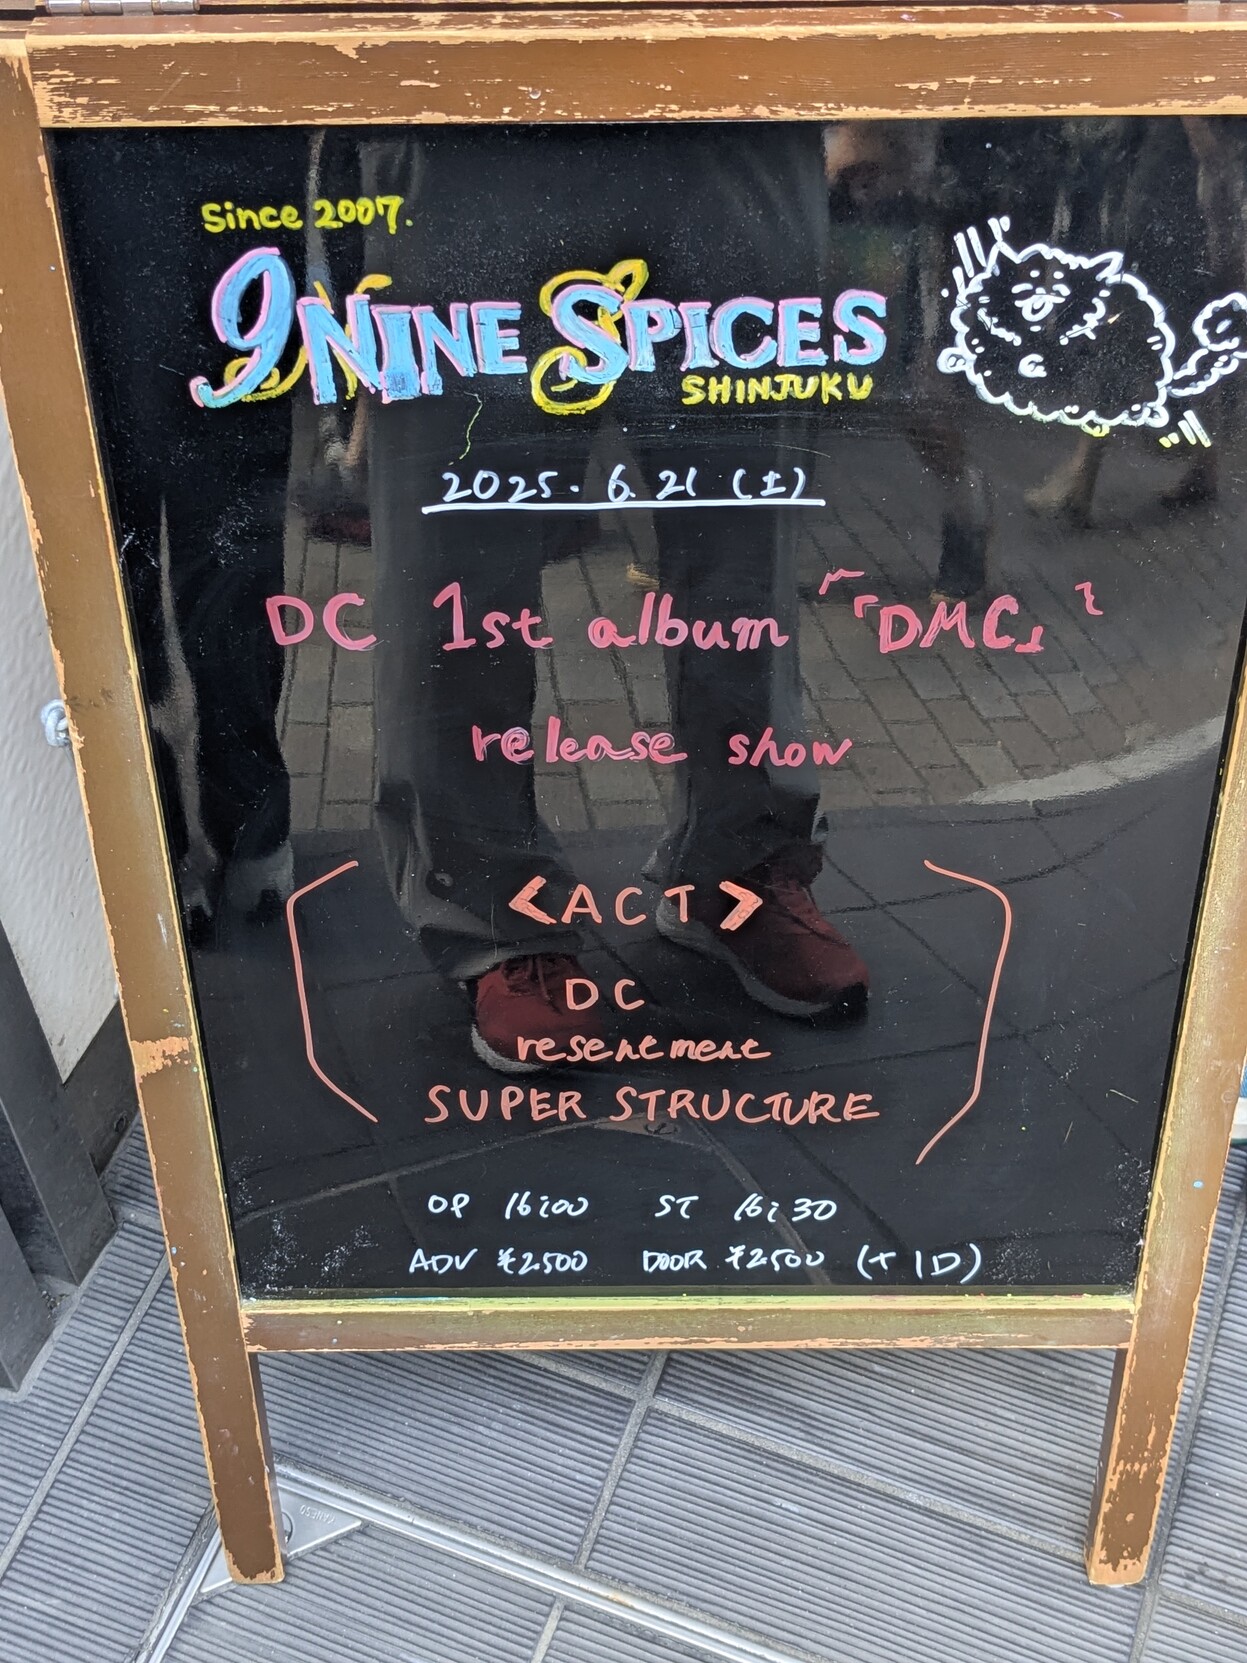 Since 2007.
9 NINE SPICES
SHINJUKU
2025. 6. 21 (土)
DC 1st album 「「DMC」
release show
<ACT>
DC
resentment
SUPER STRUCTURE
OP 16:00 ST 16:30
ADV ¥2500 DOOR ¥2500 (+1D)
KANESO